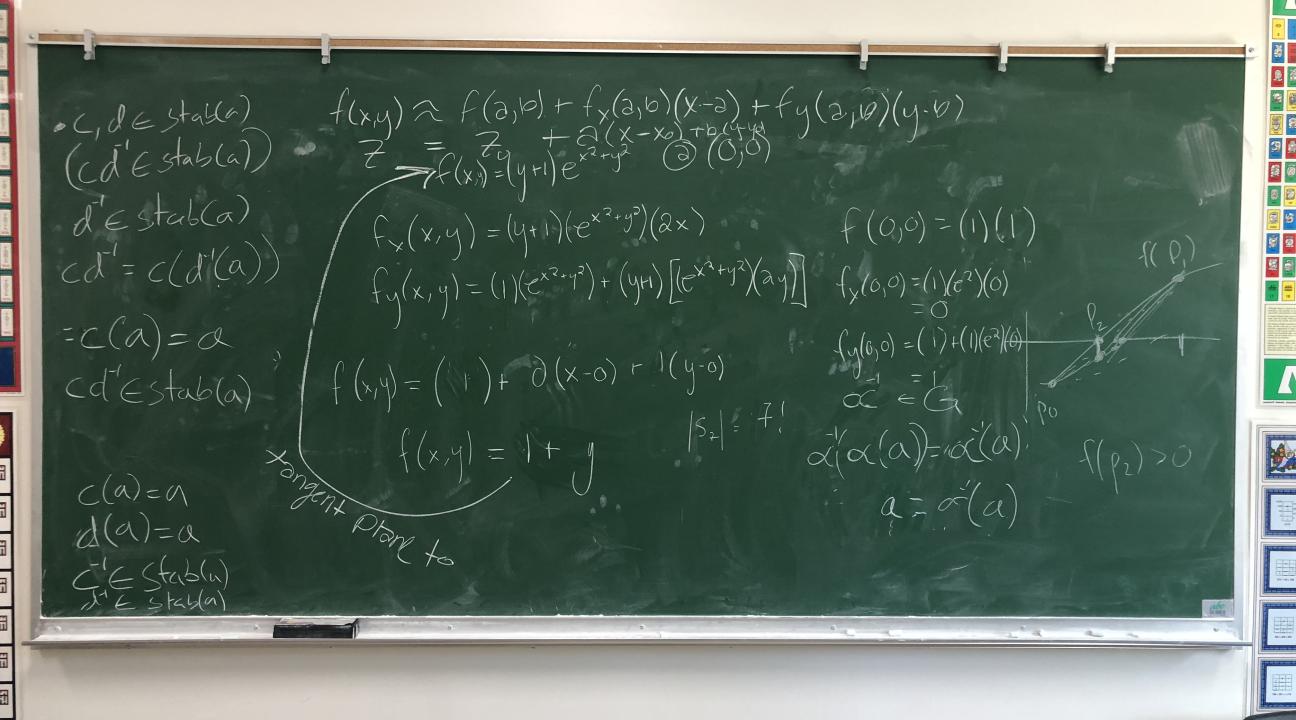 • c, d ∈ stab(a)
(cd⁻¹ ∈ stab(a))
d⁻¹ ∈ stab(a)
cd⁻¹ = c(d⁻¹(a))
= c(a) = a
cd⁻¹ ∈ stab(a)
c(a) = a
d(a) = a
c⁻¹ ∈ stab(a)
d⁻¹ ∈ stab(a)
f(x,y) ≈ f(a,b) + fₓ(a,b)(x-a) + f_y(a,b)(y-b)
z = z₀ + a(x-x₀) + b(y-y₀)
f(x,y) = (y+1)e^(x²+y²) @ (0,0)
fₓ(x,y) = (y+1)(e^(x²+y²))(2x)
f_y(x,y) = (1)(e^(x²+y²)) + (y+1)[(e^(x²+y²))(2y)]
f(x,y) = (1) + 0(x-0) + 1(y-0)
f(x,y) = 1 + y
tangent plane to
|S₂| = 7!
f(0,0) = (1)(1)
fₓ(0,0) = (1)(e²)(0)
= 0
f_y(0,0) = (1) + (1)(e²)(0)
= 1
α⁻¹ ∈ G
α⁻¹α(a) = α⁻¹(a)
a = α⁻¹(a)
f(P₁)
P₂
P₀
f(p₂) > 0